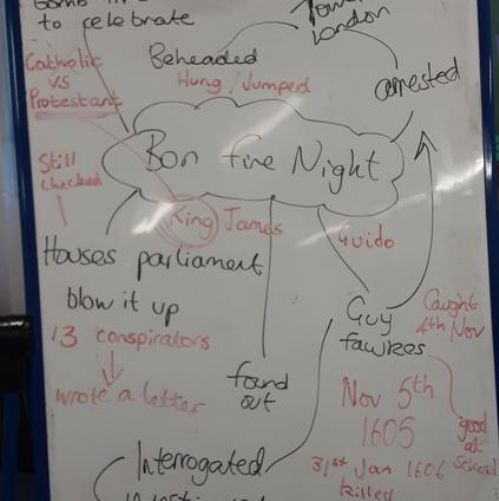 to celebrate
London
Catholic
vs
Protestant
Beheaded
Hung / Jumped
arrested
Bon fire Night
Still
checked
King James
Guido
Houses parliament
blow it up
13 conspirators
wrote a letter
found
out
Guy
fawkes
Caught
4th Nov
Nov 5th
1605
31st Jan 1606
killed
good
at
School
Interrogated